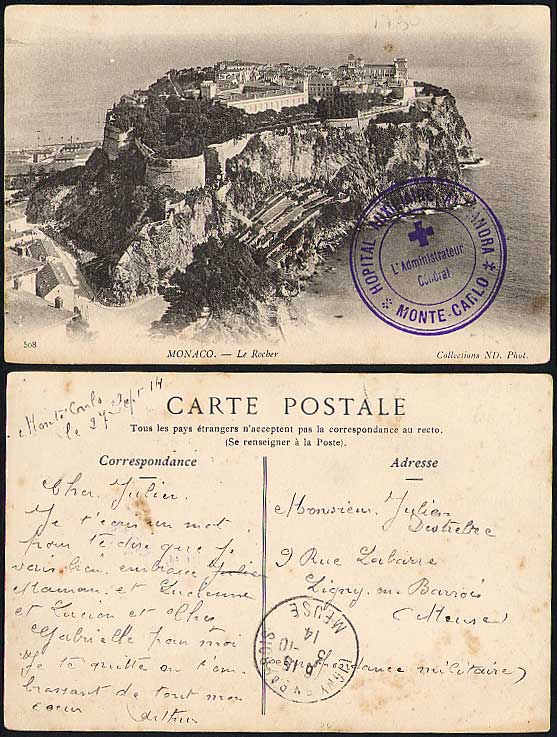 HOPITAL AUXILIAIRE
* MONTE-CARLO *
L'Administrateur
Général
508
MONACO. — Le Rocher
Collections ND. Phot.
Monte Carlo
le 27 Sept 14
CARTE POSTALE
Tous les pays étrangers n'acceptent pas la correspondance au recto.
(Se renseigner à la Poste).
Correspondance
Adresse
Cher Julien
Je t'écris un mot
pour te dire que je
vais bien embrasse Julien
Maman et Lucienne
et Lucien et
Gabrielle pour moi
Je te quitte en t'em
brassant de tout mon
coeur
Arthur
Monsieur Julien
9 Rue Labarre
Ligny en Barrois
(Meuse)
(correspondance militaire)
LIGNY EN BARROIS
MEUSE
6 15
3 -10
14